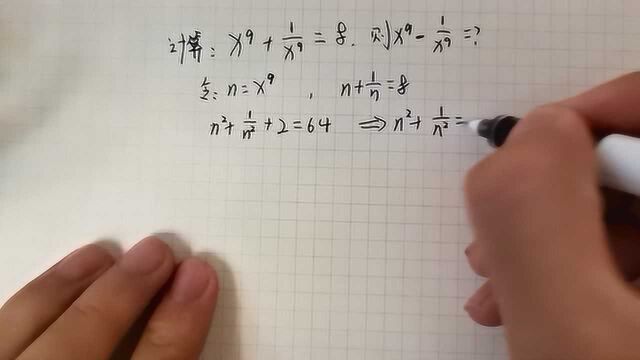 计算: x⁹ + 1/x⁹ = 8. 则 x⁹ - 1/x⁹ = ?
令: n = x⁹ , n + 1/n = 8
n² + 1/n² + 2 = 64 ⇒ n² + 1/n² =